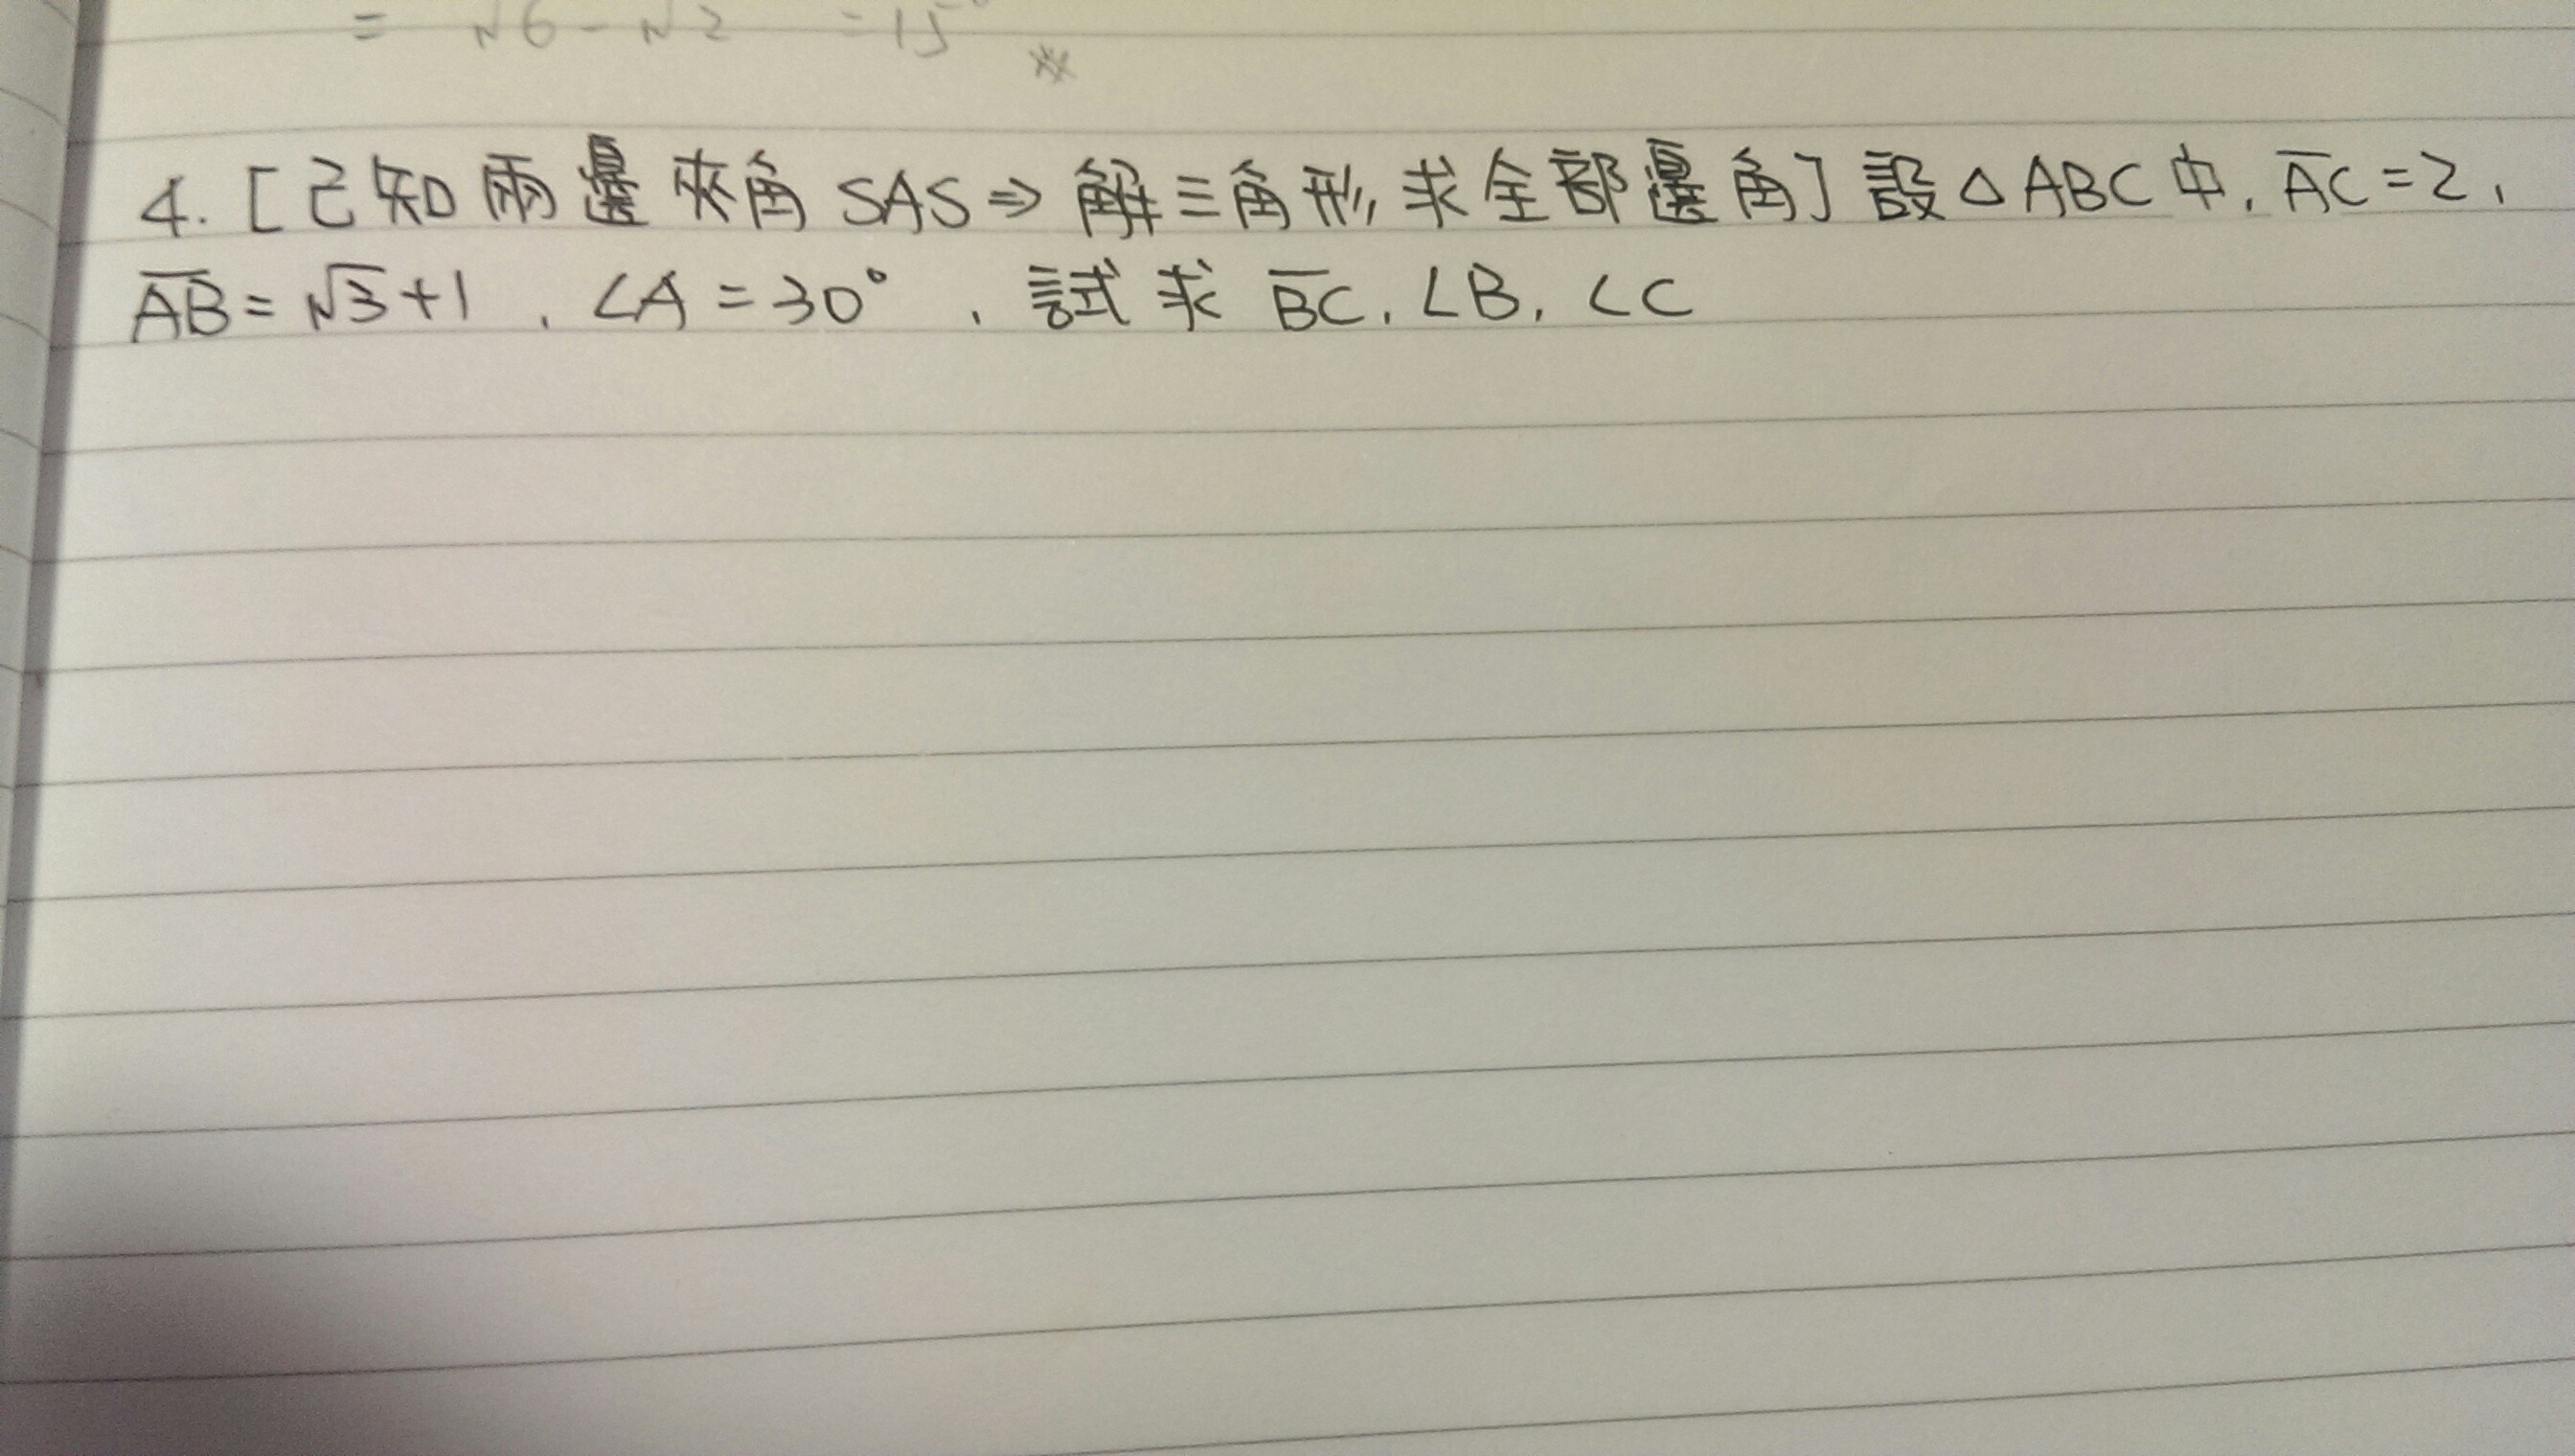 = √6 - √2 = 15° ※
4. [已知兩邊夾角 SAS ⇒ 解三角形, 求全部邊角] 設△ABC中, A̅C̅=2,
A̅B̅=√3+1 , ∠A=30° , 試求 B̅C̅, ∠B, ∠C